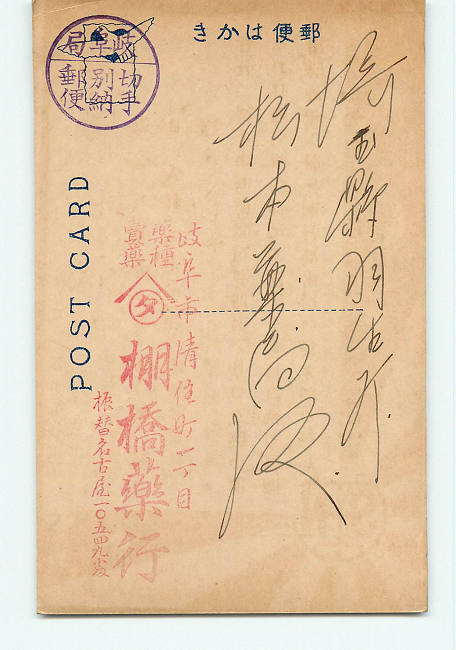 郵便はかき
岐阜局
切手
別納
郵便
POST CARD
埼玉縣羽生町
松本薬局殿
岐阜市清住町一丁目
藥種
賣藥
タ
棚橋藥行
振替名古屋一〇五四九番